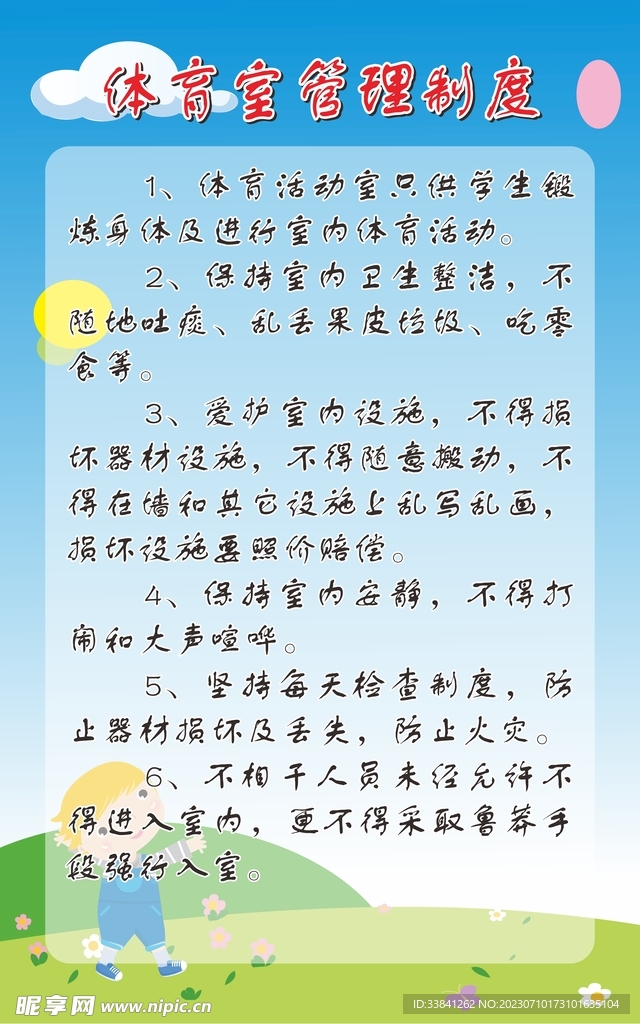 体育室管理制度
1、体育活动室只供学生锻
炼身体及进行室内体育活动。
2、保持室内卫生整洁，不
随地吐痰、乱丢果皮垃圾、吃零
食等。
3、爱护室内设施，不得损
坏器材设施，不得随意搬动，不
得在墙和其它设施上乱写乱画，
损坏设施要照价赔偿。
4、保持室内安静，不得打
闹和大声喧哗。
5、坚持每天检查制度，防
止器材损坏及丢失，防止火灾。
6、不相干人员未经允许不
得进入室内，更不得采取鲁莽手
段强行入室。
昵享网 www.nipic.cn
ID:33841262 NO:20230710173101635104